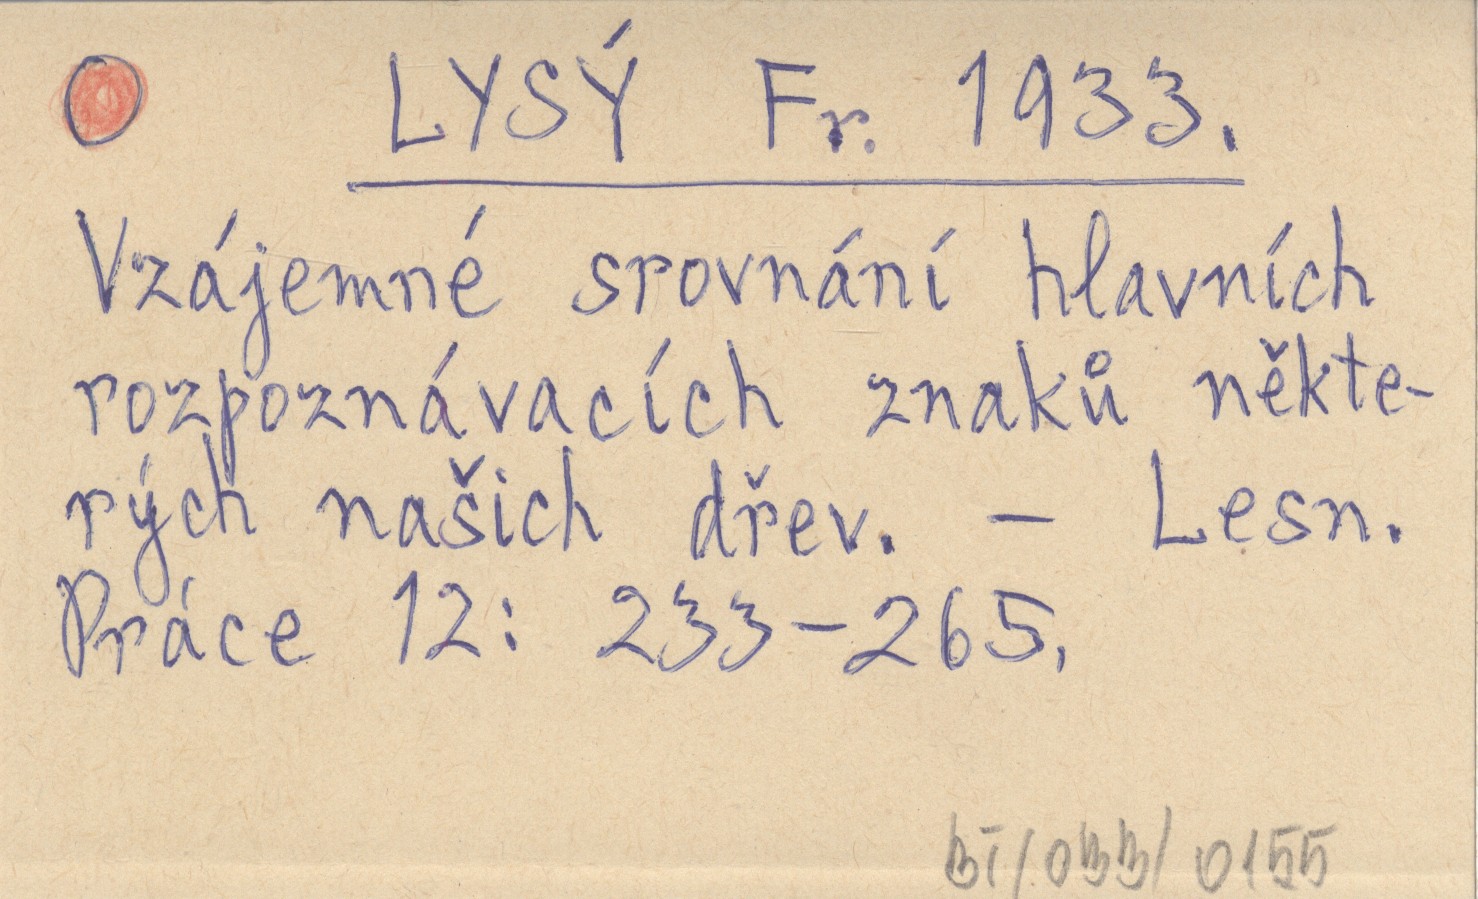 LYSÝ Fr. 1933.
Vzájemné srovnání hlavních
rozpoznávacích znaků někte-
rých našich dřev. – Lesn.
Práce 12: 233–265.
BI/033/0155